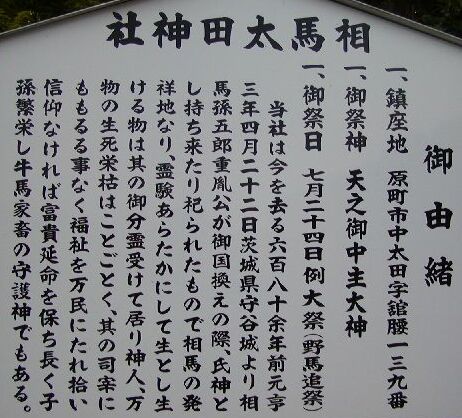 相馬太田神社
御由緒
一、鎮座地　原町市中太田字舘腰一三九番
一、御祭神　天之御中主大神
一、御祭日　七月二十四日例大祭（野馬追祭）
当社は今を去る六百八十余年前元亨
三年四月二十二日茨城県守谷城より相
馬孫五郎重胤公が御国換えの際、氏神と
し持ち来たり祀られたもので相馬の発
祥地なり、霊験あらたかにして生とし生
ける物は其の御分霊受けて居り神人、万
物の生死栄枯はことごとく、其の司宰に
ももるる事なく福祉を万民にたれ拾い
信仰なければ富貴延命を保ち長く子
孫繁栄し牛馬家畜の守護神でもある。